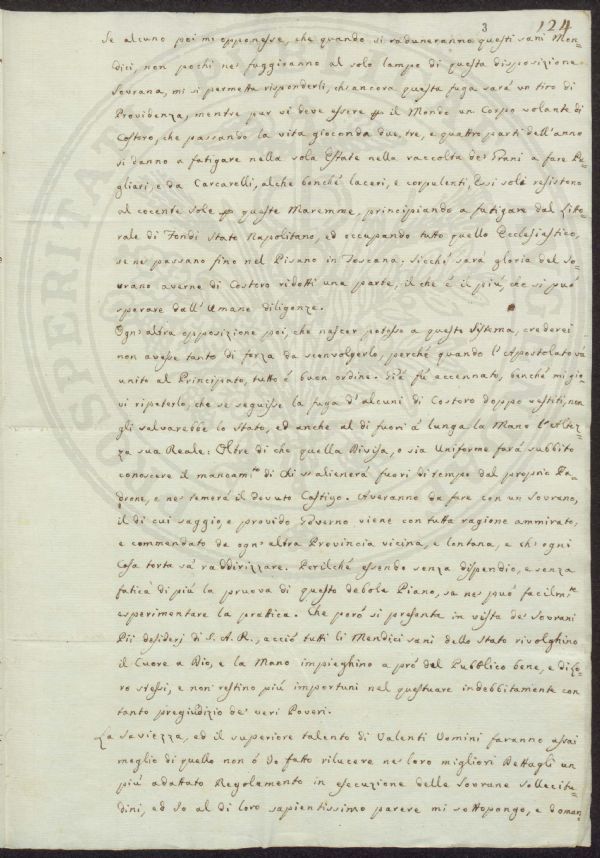 3 124
Se alcuno poi mi opponesse, che quando si raduneranno questi sani Men=
dici, non pochi ne fuggiranno al solo lampo di questa disposizione
Sovrana, mi si permetta risponderli, ch'ancora questa fuga sará un tiro di
Providenza, mentre pur vi deve essere p il Mondo un Corpo volante di
Costoro, che passando la vita gioconda due, tre, e quattro parti dell'anno
si danno a fatigare nella sola Estate nella raccolta de' Grani a fare Pa=
gliari, e da Carcarelli, alche benché laceri, e corpulenti, Essi soli resistono
al cocente sole p queste Maremme, principiando a fatigare dal Litto=
rale di Fondi Stato Napolitano, ed occupando tutto quello Ecclesiastico,
se ne passano fino nel Pisano in Toscana; Sicché sará gloria del So=
vrano averne di Costoro ridotti una parte, il che é il piú, che si puó
sperare dall'Umane diligenze.
Ogn'altra opposizione poi, che nascer potesse a questo sistema, crederei
non avesse tanto di forza da sconvolgerlo, perché quando l'Apostolato vá
unito al Principato, tutto é buon ordine. Giá fú accennato, benché mi gio=
vi ripeterlo, che se seguisse la fuga d'alcuni di Costoro doppo vestiti, non
gli salvarebbe lo Stato, ed anche al di fuori á lunga la Mano l'Altez=
za sua Reale: Oltre di che quella Divisa, o sia Uniforme fará subbito
conoscere il mancam.to di Chi s'alienerá fuori di tempo dal proprio Pa=
drone, e ne temerá il dovuto Castigo. Averanno da fare con un Sovrano,
il di cui saggio, e provido Governo viene con tutta ragione ammirato,
e commendato da ogn'altra Provincia vicina, e lontana, e ch'ogni
Cosa torta sá raddirizzare. Perilché essendo senza dispendio, e senza
fatica di piú la pruova di questo debole Piano, se ne puó facilm.te
esperimentare la prattica. Che peró si presenta in vista de' Sovrani
Pii desiderj di S. A. R., acció tutti li Mendici sani dello Stato rivolghino
il Cuore a Dio, e la Mano impieghino a pró del Pubblico bene, e di Lo=
ro stessi, e non restino piú importuni nel questuare indebbitamente con
tanto pregiudizio de' veri Poveri.
La Saviezza, ed il superiore talento di Valenti Uomini faranno assai
meglio di quello non ó Io fatto rilucere ne' loro migliori Dettagli un
piú adattato Regolamento in esecuzione delle Sovrane sollecitu=
dini, ed Io al di loro sapientissimo parere mi sottopongo, e doman=